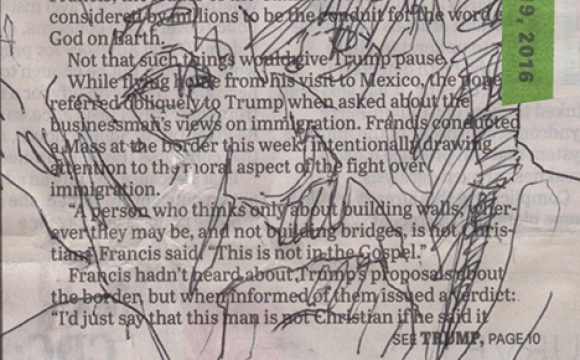 considered by millions to be the conduit for the word
God on Earth.
Not that such things would give Trump pause.
While flying home from his visit to Mexico, the pope
referred obliquely to Trump when asked about the
businessman's views on immigration. Francis conducted
a Mass at the border this week, intentionally drawing
attention to the moral aspect of the fight over
immigration.
"A person who thinks only about building walls, wher-
ever they may be, and not building bridges, is not Chris-
tian," Francis said. "This is not in the Gospel."
Francis hadn't heard about Trump's proposals about
the border, but when informed of them issued a verdict:
"I'd just say that this man is not Christian if he said it
SEE TRUMP, PAGE 10
9, 2016